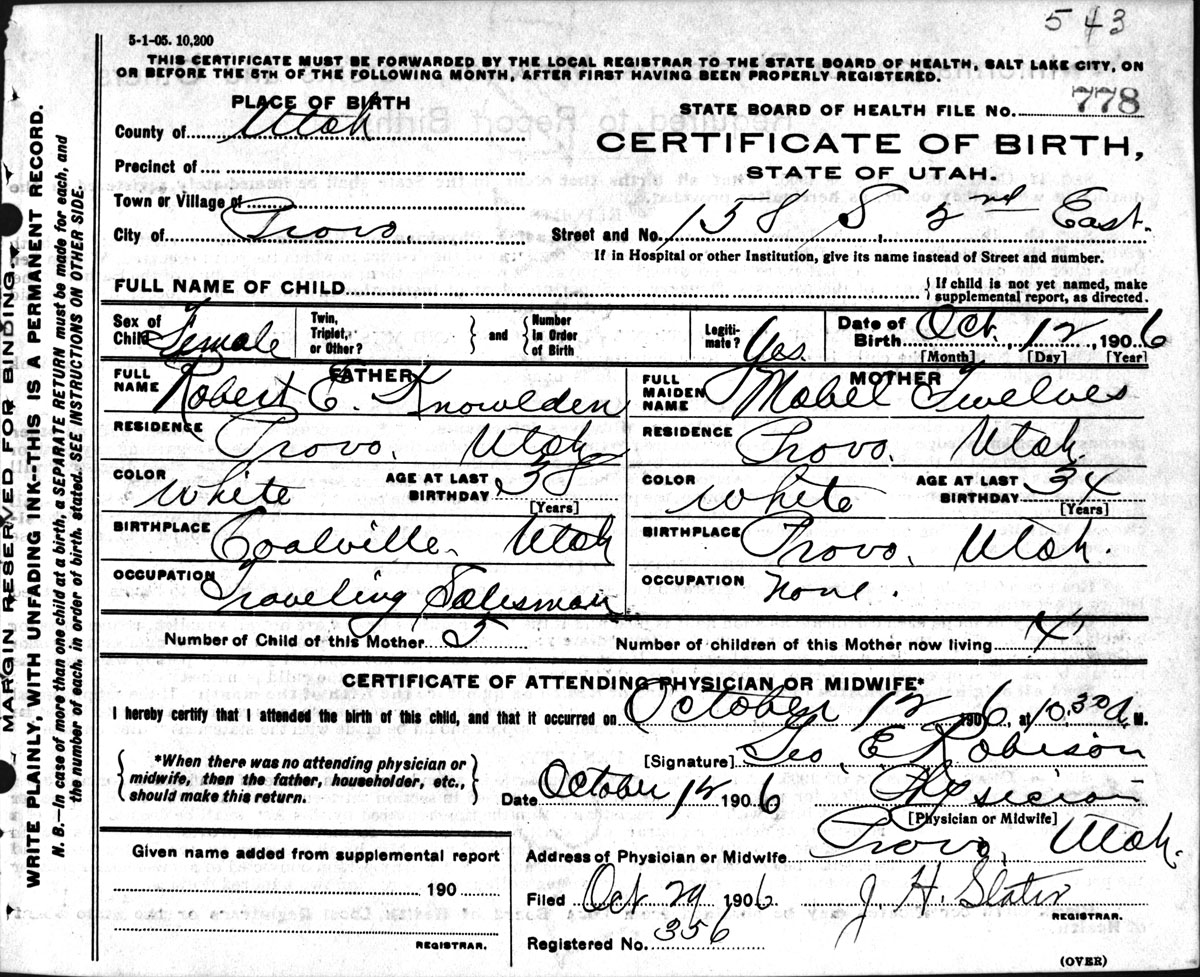 543
5-1-05. 10,200
THIS CERTIFICATE MUST BE FORWARDED BY THE LOCAL REGISTRAR TO THE STATE BOARD OF HEALTH, SALT LAKE CITY, ON
OR BEFORE THE 5TH OF THE FOLLOWING MONTH, AFTER FIRST HAVING BEEN PROPERLY REGISTERED.
PLACE OF BIRTH
STATE BOARD OF HEALTH FILE No. 778
County of Utah
CERTIFICATE OF BIRTH,
STATE OF UTAH.
Precinct of
Town or Village of
City of Provo.
Street and No. 158 S, 2nd East.
If in Hospital or other Institution, give its name instead of Street and number.
FULL NAME OF CHILD { If child is not yet named, make
supplemental report, as directed.
Sex of Child Female
Twin, Triplet, or Other? } and { Number in Order of Birth
Legitimate? Yes.
Date of Birth Oct. 12 1906
[Month] [Day] [Year]
FATHER
FULL NAME Robert E. Knowlden
MOTHER
FULL MAIDEN NAME Mabel Twelves
RESIDENCE Provo. Utah
RESIDENCE Provo. Utah.
COLOR White AGE AT LAST BIRTHDAY 38 [Years]
COLOR White AGE AT LAST BIRTHDAY 34 [Years]
BIRTHPLACE Coalville. Utah
BIRTHPLACE Provo. Utah.
OCCUPATION Traveling Salesman
OCCUPATION None.
Number of Child of this Mother 5 Number of children of this Mother now living 4
CERTIFICATE OF ATTENDING PHYSICIAN OR MIDWIFE*
I hereby certify that I attended the birth of this child, and that it occurred on October 12 1906, at 10.30 a. M.
{ *When there was no attending physician or
midwife, then the father, householder, etc.,
should make this return. }
[Signature] Geo. E. Robison
Date October 12 1906 Physician
[Physician or Midwife]
Given name added from supplemental report
190
REGISTRAR.
Address of Physician or Midwife Provo, Utah.
Filed Oct 29 1906 J. H. Slater
REGISTRAR.
Registered No. 356
(OVER)
MARGIN RESERVED FOR BINDING.
WRITE PLAINLY, WITH UNFADING INK--THIS IS A PERMANENT RECORD.
N. B.—In case of more than one child at a birth, a SEPARATE RETURN must be made for each, and
the number of each, in order of birth, stated. SEE INSTRUCTIONS ON OTHER SIDE.